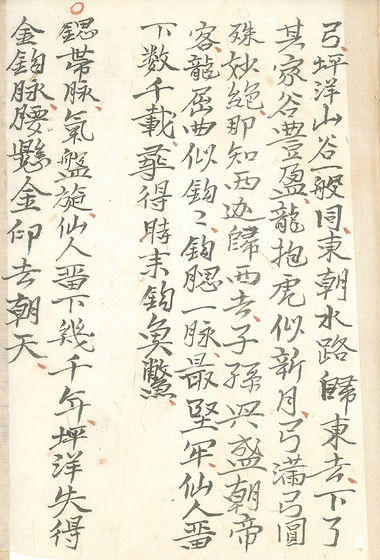 弓、坪洋山谷一般同、東朝水路歸東去、下了
其家谷豊盈、龍抱虎似新月、弓滿弓圓
殊妙絶、那知西边歸西去、子孫兴盛朝帝
客、龍屈曲似鈎〻、鈎腮一脉最堅牢、仙人畱
下数千載、尋得時来釣魚鱉
鍶帶脉、氣盤旋、仙人畱下幾千年、坪洋失得
金鈎脉、腰懸金印去朝天、